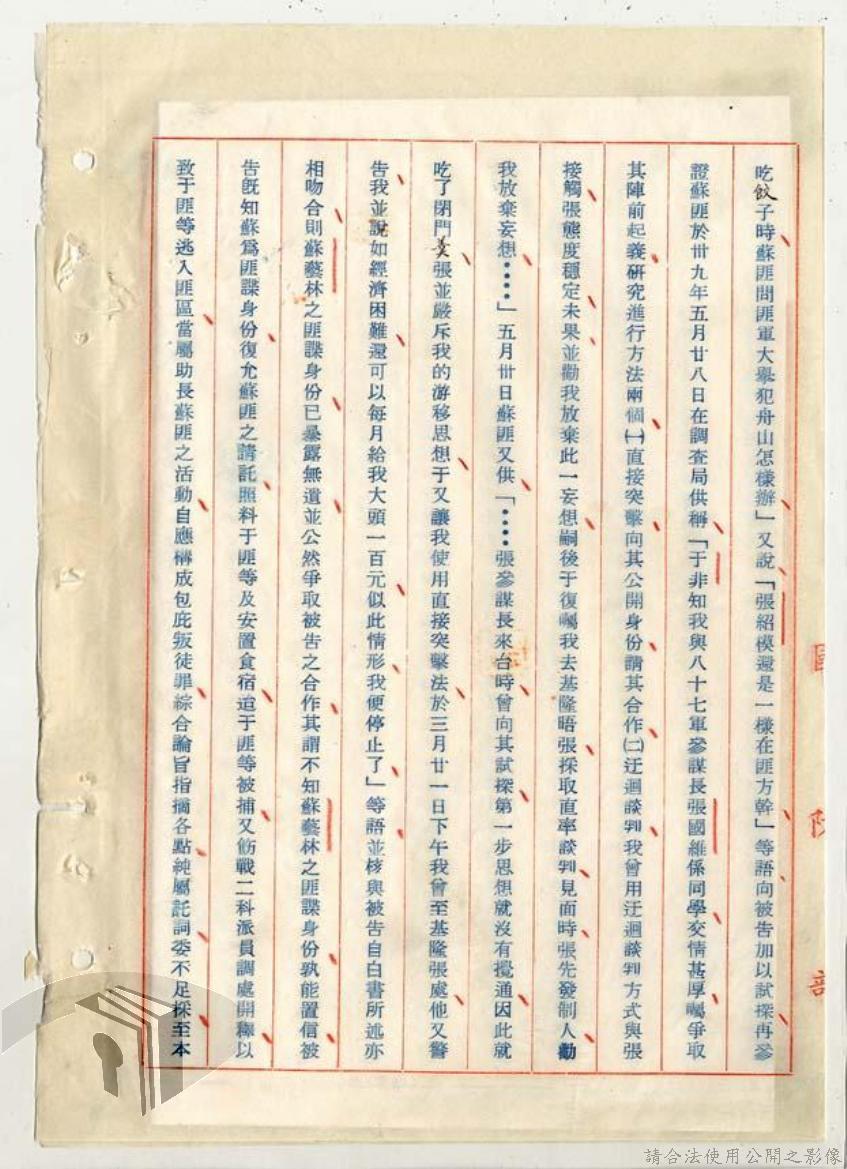 吃餃子時蘇匪問匪軍大舉犯舟山怎樣辦」又說「張紹模還是一樣在匪方幹」等語向被告加以試探再參
證蘇匪於卅九年五月廿八日在調查局供稱「于非知我與八十七軍參謀長張國維係同學交情甚厚囑爭取
其陣前起義研究進行方法兩個㈠直接突擊向其公開身份請其合作㈡迂迴談判我曾用迂迴談判方式與張
接觸張態度穩定未果並勸我放棄此一妄想嗣後于復囑我去基隆晤張採取直率談判見面時張先發制人勸
我放棄妄想‥‥」五月卅日蘇匪又供「‥‥張參謀長來台時曾向其試探第一步思想就沒有攪通因此就
吃了閉門羹張並嚴斥我的游移思想于又讓我使用直接突擊法於三月廿一日下午我曾至基隆張處他又警
告我並說如經濟困難還可以每月給我大頭一百元似此情形我便停止了」等語並核與被告自白書所述亦
相吻合則蘇藝林之匪諜身份已暴露無遺並公然爭取被告之合作其謂不知蘇藝林之匪諜身份孰能置信被
告既知蘇為匪諜身份復允蘇匪之請託照料于匪等及安置食宿迨于匪等被捕又飭戰二科派員調處開釋以
致于匪等逃入匪區當屬助長蘇匪之活動自應構成包庇叛徒罪綜合論旨指摘各點純屬託詞委不足採至本
國防部
請合法使用公開之影像